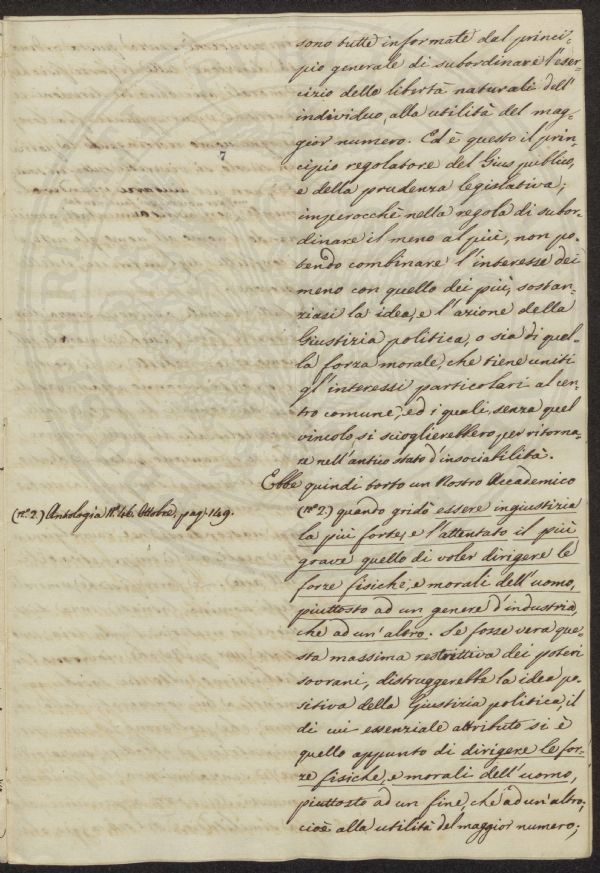 sono tutte informate dal princi-
pio generale di subordinare l'eser-
cizio delle libertà naturali dell'
individuo, alla utilità del mag-
gior numero. Ed è questo il prin-
cipio regolatore del Gius publico,
e della prudenza legislativa;
imperocchè nella regola di subor-
dinare il meno al più, non po-
tendo combinare l'interesse dei
meno con quello dei più, sostan-
ziasi la idea, e l'azione della
Giustizia politica, o sia di quel-
la forza morale, che tiene uniti
gl'interessi particolari al cen-
tro comune, ed i quali, senza quel
vincolo, si scioglierebbero, per ritorna-
re nell'antico stato d'insociabilità.
Ebbe quindi torto un Nostro Accademico
(n.° 2.) Antologia N.° 46. Ottobre, pag. 149.
(n.° 2.) quando gridò essere ingiustizia
la più forte, e l'attentato il più
grave quello di voler dirigere le
forze fisiche, e morali dell'uomo,
piuttosto ad un genere d'industria,
che ad un'altro. Se fosse vera que-
sta massima restrittiva dei poteri
sovrani, distruggerebbe la idea po-
sitiva della Giustizia politica, il
di cui essenziale attributo si è
quello appunto di dirigere le for-
ze fisiche, e morali dell'uomo,
piuttosto ad un fine, che ad un'altro,
cioè alla utilità del maggior numero;